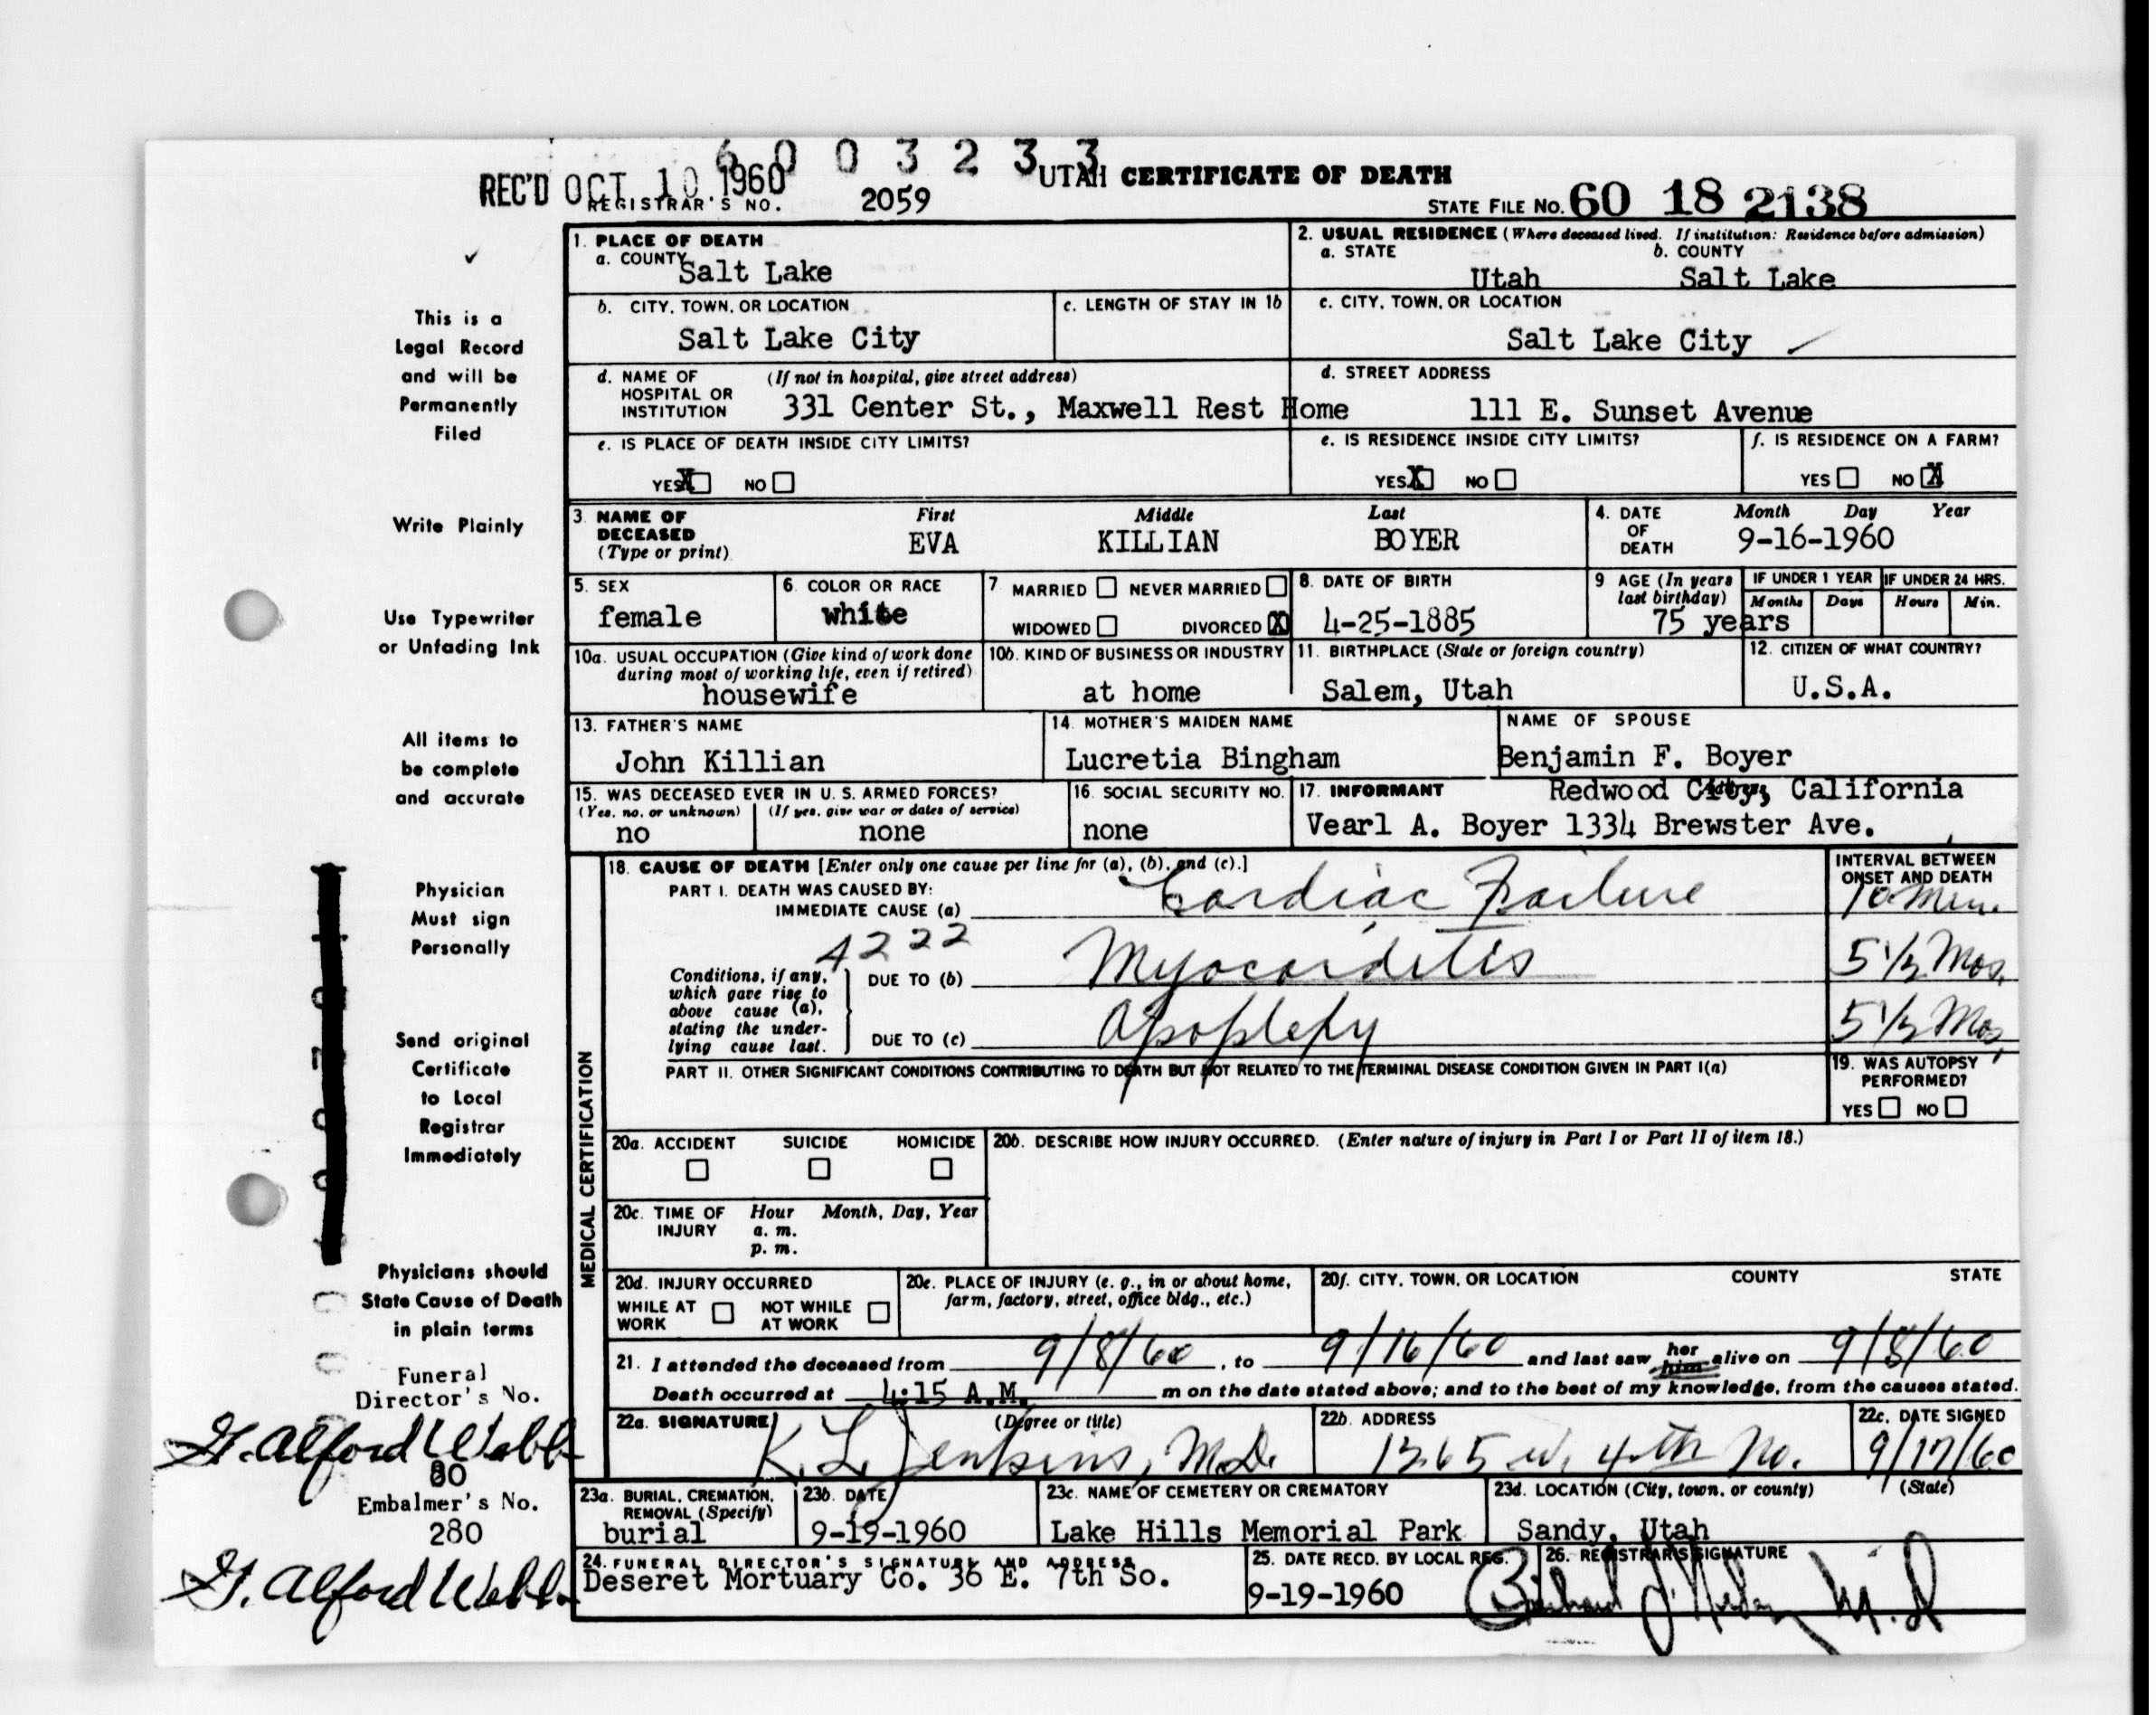 6 0 0 3 2 3 3
REC'D OCT 10 1960
UTAH CERTIFICATE OF DEATH
REGISTRAR'S NO. 2059
STATE FILE NO. 60 18 2138
This is a
Legal Record
and will be
Permanently
Filed
Write Plainly
Use Typewriter
or Unfading Ink
All items to
be complete
and accurate
Physician
Must sign
Personally
Send original
Certificate
to Local
Registrar
Immediately
Physicians should
State Cause of Death
in plain terms
Funeral
Director's No.
G. Alford Webb
80
Embalmer's No.
280
G. Alford Webb
1. PLACE OF DEATH
a. COUNTY
Salt Lake
2. USUAL RESIDENCE (Where deceased lived. If institution: Residence before admission)
a. STATE b. COUNTY
Utah Salt Lake
b. CITY, TOWN, OR LOCATION
Salt Lake City
c. LENGTH OF STAY IN 1b
c. CITY, TOWN, OR LOCATION
Salt Lake City
d. NAME OF (If not in hospital, give street address)
HOSPITAL OR
INSTITUTION 331 Center St., Maxwell Rest Home
d. STREET ADDRESS
111 E. Sunset Avenue
e. IS PLACE OF DEATH INSIDE CITY LIMITS?
YES X NO
e. IS RESIDENCE INSIDE CITY LIMITS?
YES X NO
f. IS RESIDENCE ON A FARM?
YES NO X
3. NAME OF DECEASED (Type or print)
First Middle Last
EVA KILLIAN BOYER
4. DATE OF DEATH
Month Day Year
9-16-1960
5. SEX
female
6. COLOR OR RACE
white
7 MARRIED NEVER MARRIED
WIDOWED DIVORCED X
8. DATE OF BIRTH
4-25-1885
9 AGE (In years last birthday)
75 years
IF UNDER 1 YEAR IF UNDER 24 HRS.
Months Days Hours Min.
10a. USUAL OCCUPATION (Give kind of work done
during most of working life, even if retired)
housewife
10b. KIND OF BUSINESS OR INDUSTRY
at home
11. BIRTHPLACE (State or foreign country)
Salem, Utah
12. CITIZEN OF WHAT COUNTRY?
U.S.A.
13. FATHER'S NAME
John Killian
14. MOTHER'S MAIDEN NAME
Lucretia Bingham
NAME OF SPOUSE
Benjamin F. Boyer
15. WAS DECEASED EVER IN U. S. ARMED FORCES?
(Yes, no, or unknown) (If yes, give war or dates of service)
no none
16. SOCIAL SECURITY NO.
none
17. INFORMANT Redwood City, California
Vearl A. Boyer 1334 Brewster Ave.
MEDICAL CERTIFICATION
18. CAUSE OF DEATH [Enter only one cause per line for (a), (b), and (c).]
PART I. DEATH WAS CAUSED BY:
IMMEDIATE CAUSE (a) Cardiac Failure
INTERVAL BETWEEN
ONSET AND DEATH
10 Min.
4222
Conditions, if any,
which gave rise to
above cause (a),
stating the under-
lying cause last.
DUE TO (b) Myocarditis 5 1/2 Mos.
DUE TO (c) Apoplexy 5 1/2 Mos,
PART II. OTHER SIGNIFICANT CONDITIONS CONTRIBUTING TO DEATH BUT NOT RELATED TO THE TERMINAL DISEASE CONDITION GIVEN IN PART I(a)
19. WAS AUTOPSY
PERFORMED?
YES NO
20a. ACCIDENT SUICIDE HOMICIDE
20b. DESCRIBE HOW INJURY OCCURRED. (Enter nature of injury in Part I or Part II of item 18.)
20c. TIME OF INJURY Hour Month, Day, Year
a. m.
p. m.
20d. INJURY OCCURRED
WHILE AT WORK NOT WHILE AT WORK
20e. PLACE OF INJURY (e. g., in or about home,
farm, factory, street, office bldg., etc.)
20f. CITY, TOWN, OR LOCATION COUNTY STATE
21. I attended the deceased from 9/8/60, to 9/16/60 and last saw her him alive on 9/8/60
Death occurred at 4:15 A.M. m on the date stated above; and to the best of my knowledge, from the causes stated.
22a. SIGNATURE (Degree or title)
K. L. Jenkins, M.D.
22b. ADDRESS
1365 W. 4th No.
22c. DATE SIGNED
9/17/60
23a. BURIAL, CREMATION,
REMOVAL (Specify)
burial
23b. DATE
9-19-1960
23c. NAME OF CEMETERY OR CREMATORY
Lake Hills Memorial Park
23d. LOCATION (City, town, or county) (State)
Sandy, Utah
24. FUNERAL DIRECTOR'S SIGNATURE AND ADDRESS
Deseret Mortuary Co. 36 E. 7th So.
25. DATE RECD. BY LOCAL REG.
9-19-1960
26. REGISTRAR'S SIGNATURE
M.D